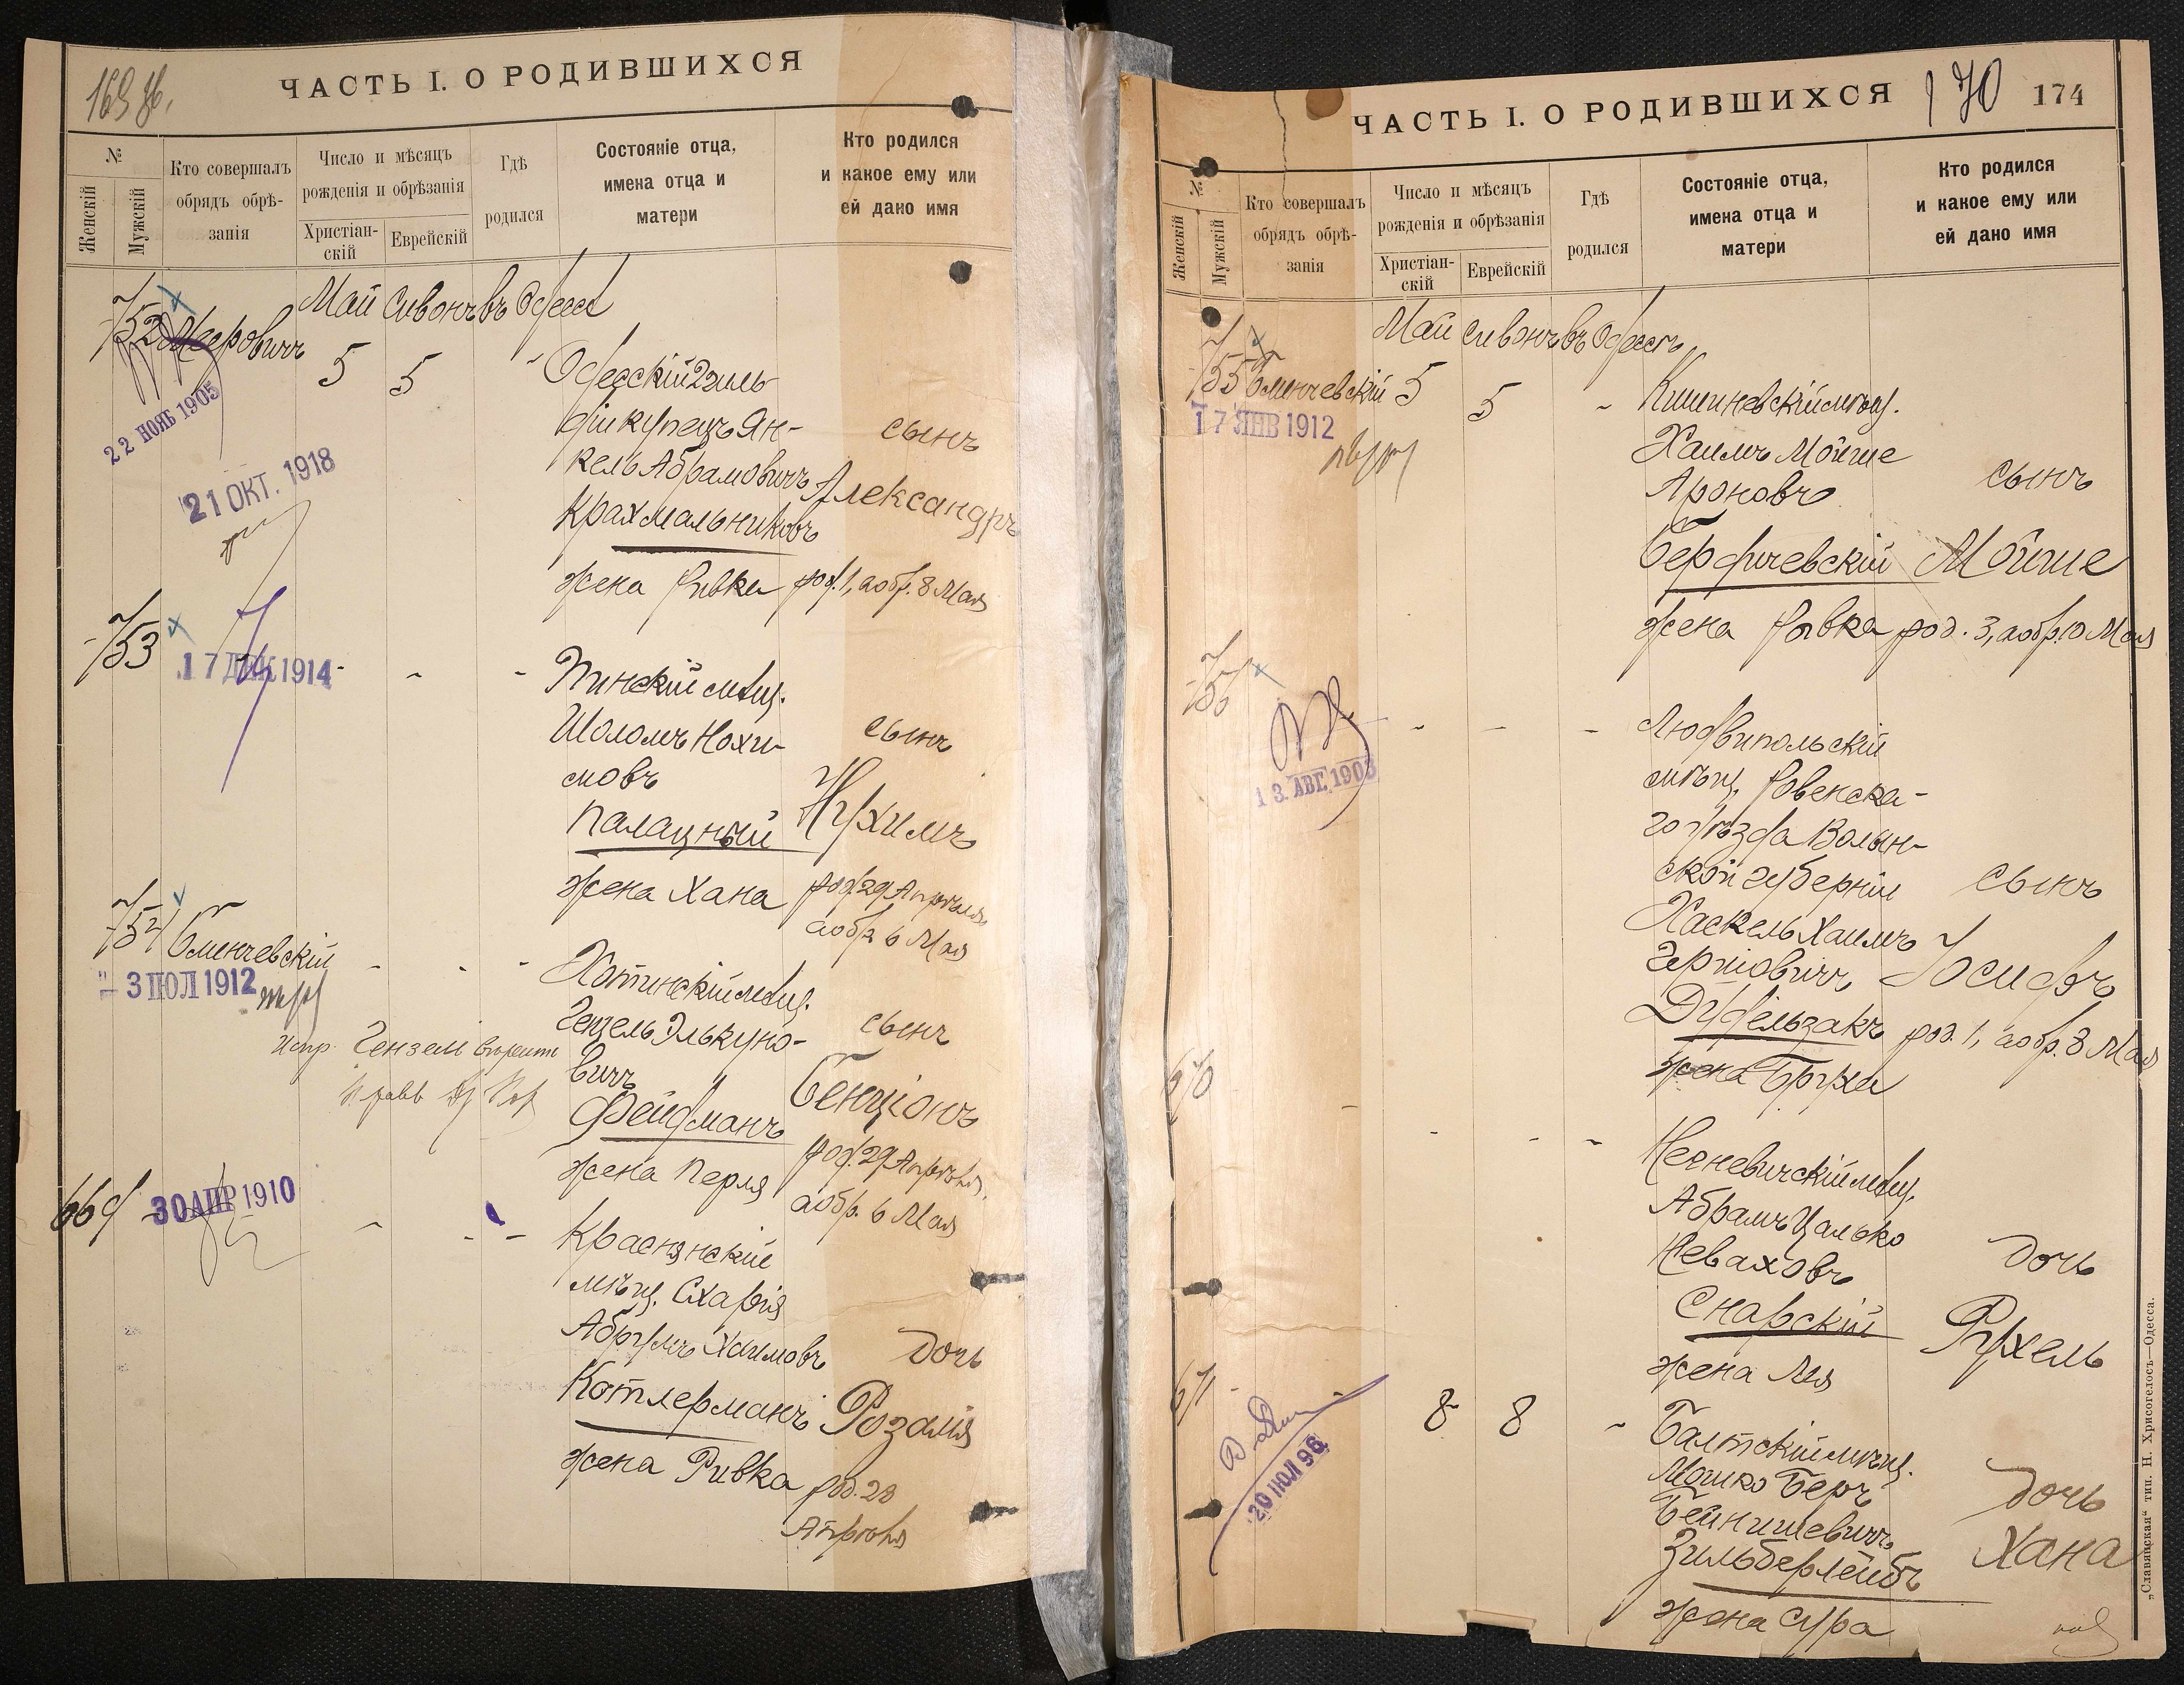 ЧАСТЬ I. О РОДИВШИХСЯ
№
Женскій
Мужскій
Кто совершалъ
обрядъ обрѣ-
занія
Число и мѣсяцъ
рожденія и обрѣзанія
Христіан-
скій
Еврейскій
Гдѣ
родился
Состояніе отца,
имена отца и
матери
Кто родился
и какое ему или
ей дано имя
Май Сивонъ въ Одессѣ
752 Меировичъ 5 5 -
22 НОЯБ 1905
21 ОКТ. 1918
Одесскій 2 гиль-
діи купецъ Ян-
кель Абрамовичъ
Крахмальниковъ
жена Ривка
сынъ
Александръ
род. 1, а обр. 8 Мая
753
17 ДЕК 1914
Пинскій мѣщ.
Шоломъ Нохи-
мовъ
Палацный
жена Хана
сынъ
Нухимъ
род. 29 Апрѣля,
а обр. 6 Мая
754 Сминчевскій
3 ІЮЛ 1912
Хотинскій мѣщ.
Гецель Элькуно-
вичъ
Фейфманъ
жена Перля
сынъ
Бенціонъ
род. 29 Апрѣля,
а обр. 6 Мая
669
30 АПР 1910
Краснянскій
мѣщ. Схарія
Абрумъ Хаимовъ
Котлерманъ
жена Ривка
дочь
Розалія
род. 28
Апрѣля
ЧАСТЬ I. О РОДИВШИХСЯ
170
174
№
Женскій
Мужскій
Кто совершалъ
обрядъ обрѣ-
занія
Число и мѣсяцъ
рожденія и обрѣзанія
Христіан-
скій
Еврейскій
Гдѣ
родился
Состояніе отца,
имена отца и
матери
Кто родился
и какое ему или
ей дано имя
Май Сивонъ въ Одессѣ
755 Сминчевскій 5 5 -
17 ЯНВ 1912
Кишиневскій мѣщ.
Хаимъ Мойше
Ароновъ
Бердичевскій
жена Ривка
сынъ
Мойше
род. 3, а обр. 10 Мая
756
13. АВГ. 1903
Людвипольскій
мѣщ. Ровенска-
го уѣзда Волын-
ской губерніи
Хаскель Хаимъ
Гершовичъ
Дуфельзакъ
жена Бруха
сынъ
Іосифъ
род. 1, а обр. 8 Мая
670
Несневичскій мѣщ.
Абрамъ Цалько
Неваховъ
Снарскій
жена Лея
дочь
Рухель
671
20 ІЮЛ 96
8 8 -
Балтскій мѣщ.
Мошко Беръ
Бейнишевичъ
Зильберлейбъ
жена Сура
дочь
Хана
„Славянская“ тип. Н. Хрисогелосъ—Одесса.